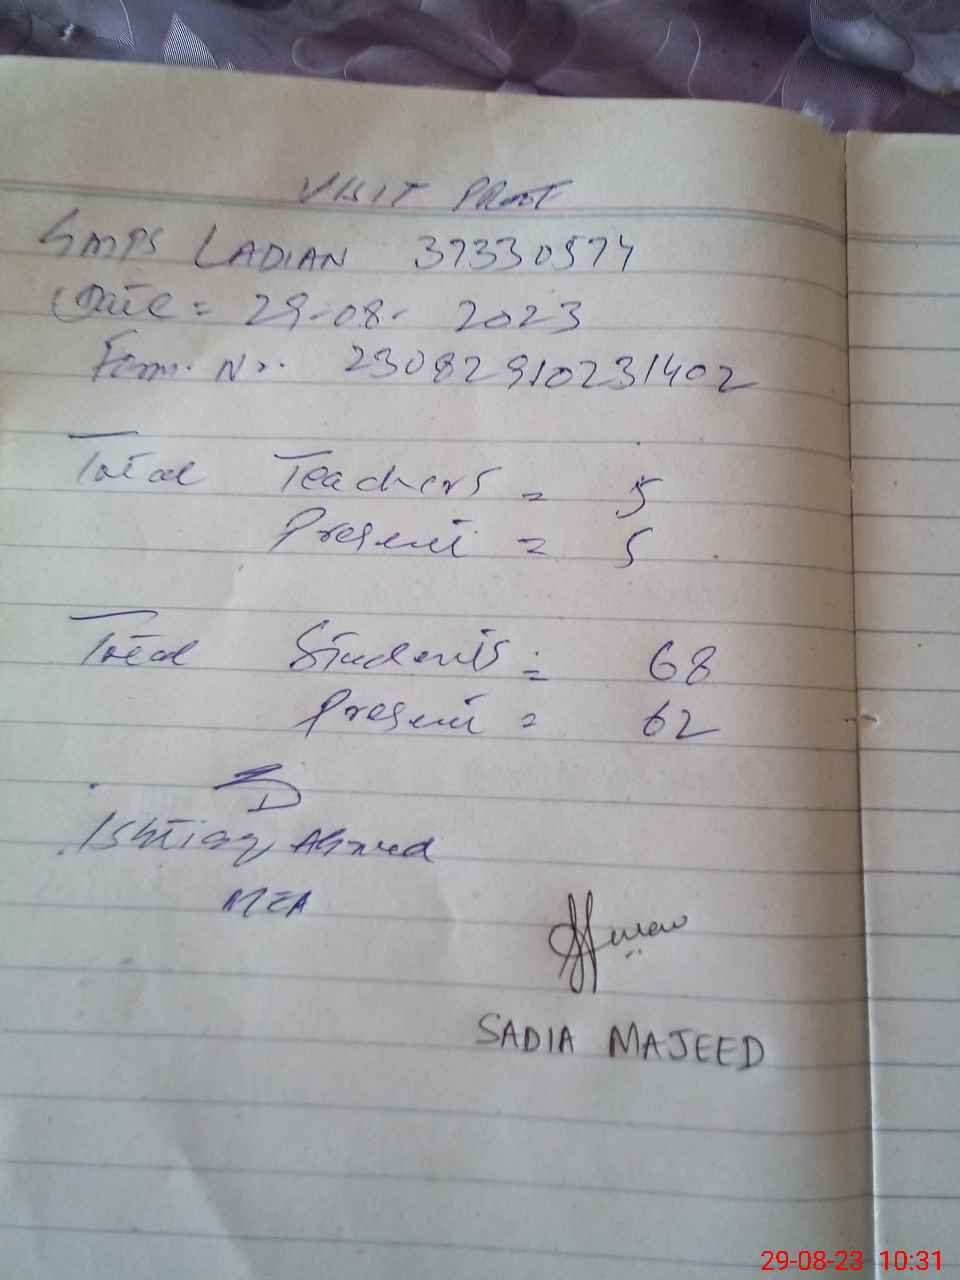 VISIT PROOF
GMPS LADIAN 37330574
Date = 29-08- 2023
Form. No. 23082910231402
Total Teachers = 5
Present = 5
Total Students = 68
Present = 62
Ishtiaq Ahmed
MEA
SADIA MAJEED
29-08-23 10:31